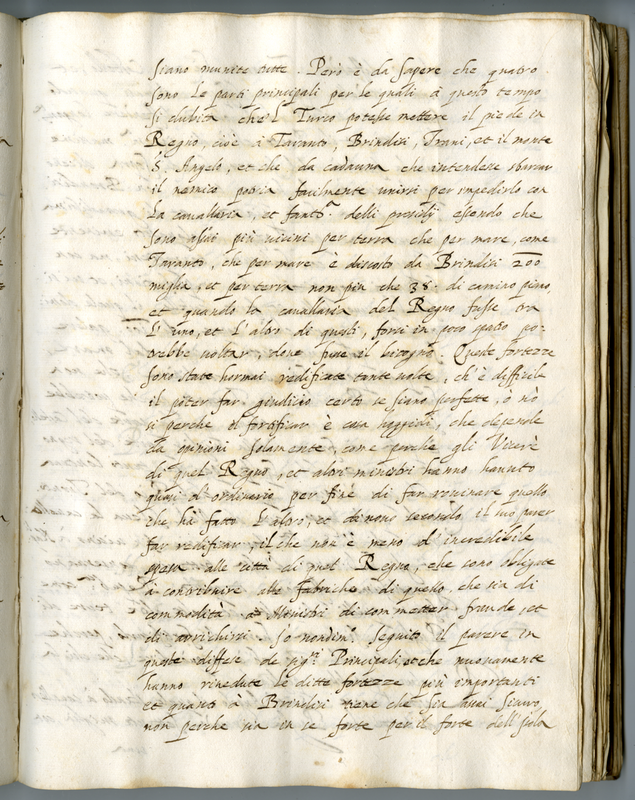 siano munite tutte. Però è da sapere che quatro
sono le parti principali per le quali à questo tempo
si dubita che'l Turco potesse mettere il piede in
Regno, cioè à Taranto, Brindisi, Trani, et il monte
S. Angelo, et che da cadauna che intendesse sbarcar
il nemico potria facilmente unirsi per impedirlo con
la cavallaria, et fant.ª delli presidij essendo che
sono assai più vicini per terra che per mare, come
Taranto, che per mare è discosto da Brindisi 200
miglia, et per terra non più che 38. di camino piano,
et quando la cavallaria del Regno fusse tra
l'uno, et l'altro di questi, forsi in poco spatio po-
trebbe voltar, dove fusse il bisogno. Queste fortezze
sono state hormai redificate tante volte, ch'è difficile
il poter far giudicio certo se siano perfette, ò nò
si perche il fortificar è cosa hoggidì, che depende
da opinioni solamente, come perche gli Vicerè
di quel Regno, et altri ministri hanno havuto
quasi d'ordinario per fine di far rovinare quello
che hà fatto l'altro, et di novo secondo il suo parer
far redificar, il che non è meno d'incredibile
spesa alle città di quel Regno, che sono obligate
à contribuire alle fabriche di quello, che sia di
commodità à Ministri di commetter fraude, et
di arrichirsi. Io nondim.º seguitò il parere in
queste diffese de Principali, et che nuovamente
hanno rivedute le ditte fortezze più importanti
et quanto à Brindisi tiene che sia assai sicuro,
non perche sia in se forte per il forte dell'isola